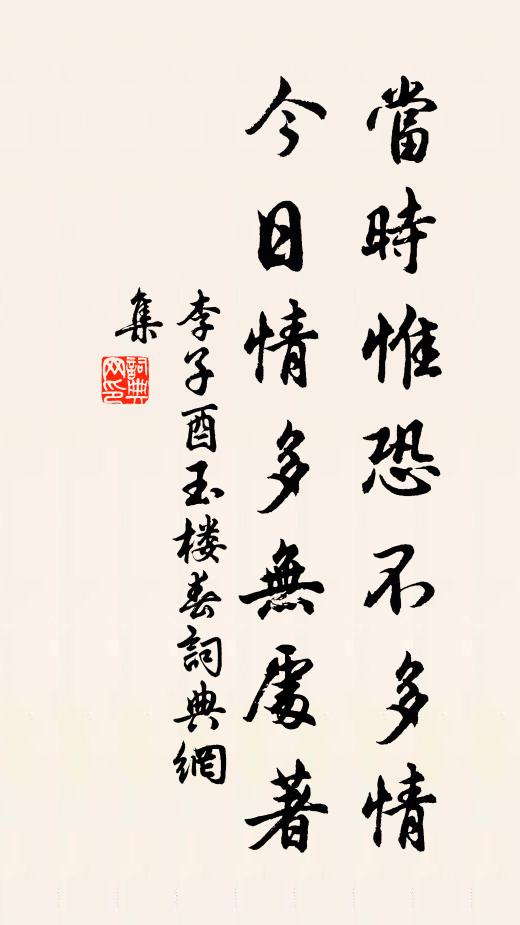 當時惟恐不多情
今日情多無處著
李子酉玉楼春詞典網
集
詞典
网印